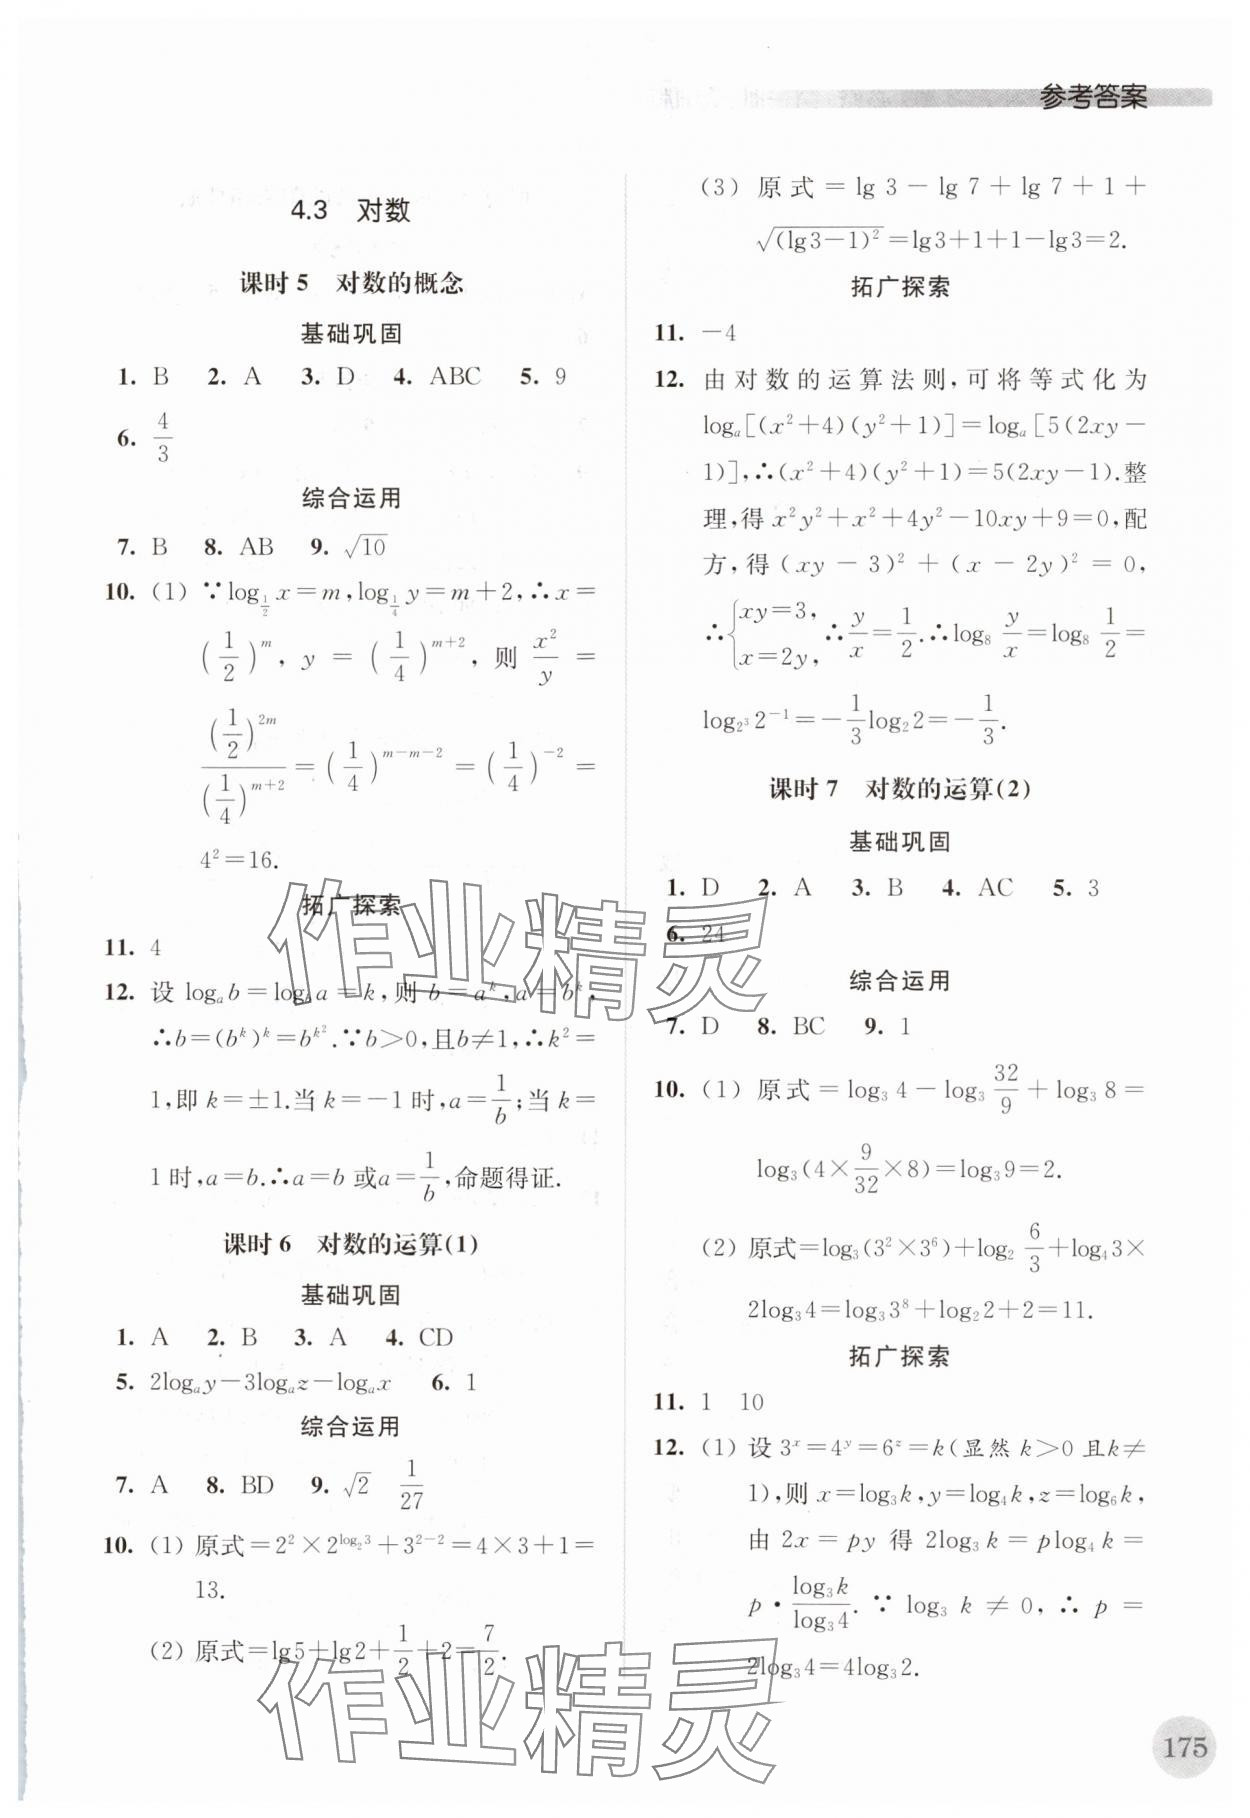 参考答案
4.3 对数
课时 5 对数的概念
基础巩固
1. B 2. A 3. D 4. ABC 5. 9
6. 4/3
综合运用
7. B 8. AB 9. √10
10. (1) ∵log_{1/2} x=m,log_{1/4} y=m+2,∴x=
(1/2)^m, y=(1/4)^{m+2}, 则 x²/y =
(1/2)^{2m}/(1/4)^{m+2}=(1/4)^{m-m-2}=(1/4)^{-2}=
4²=16.
拓广探索
11. 4
12. 设 log_a b=log_b a=k,则 b=a^k,a=b^k,
∴b=(b^k)^k=b^{k²}.∵b>0,且b≠1,∴k²=
1,即 k=±1.当 k=-1 时,a=1/b;当 k=
1 时,a=b.∴a=b 或a=1/b,命题得证.
课时 6 对数的运算(1)
基础巩固
1. A 2. B 3. A 4. CD
5. 2log_a y-3log_a z-log_a x 6. 1
综合运用
7. A 8. BD 9. √2 1/27
10. (1) 原式=2²×2^{log₂3}+3^{2-2}=4×3+1=
13.
(2) 原式=lg5+lg2+1/2+2=7/2.
(3) 原式=lg 3-lg 7+lg 7+1+
√(lg3-1)²=lg3+1+1-lg3=2.
拓广探索
11. -4
12. 由对数的运算法则,可将等式化为
log_a[(x²+4)(y²+1)]=log_a[5(2xy-
1)],∴(x²+4)(y²+1)=5(2xy-1).整
理,得 x²y²+x²+4y²-10xy+9=0,配
方,得 (xy-3)²+(x-2y)²=0,
∴{xy=3, x=2y, ∴y/x=1/2.∴log₈ y/x=log₈ 1/2=
log_{2³}2^{-1}=-1/3 log₂2=-1/3.
课时 7 对数的运算(2)
基础巩固
1. D 2. A 3. B 4. AC 5. 3
6. 24
综合运用
7. D 8. BC 9. 1
10. (1) 原式=log₃4-log₃ 32/9+log₃8=
log₃(4×9/32×8)=log₃9=2.
(2) 原式=log₃(3²×3⁶)+log₂ 6/3+log₄3×
2log₃4=log₃3⁸+log₂2+2=11.
拓广探索
11. 1 10
12. (1) 设 3^x=4^y=6^z=k(显然 k>0 且k≠
1),则 x=log₃k,y=log₄k,z=log₆k,
由 2x=py 得 2log₃k=plog₄k=
p·log₃k/log₃4.∵log₃k≠0,∴p=
2log₃4=4log₃2.
175
作业精灵
作业精灵